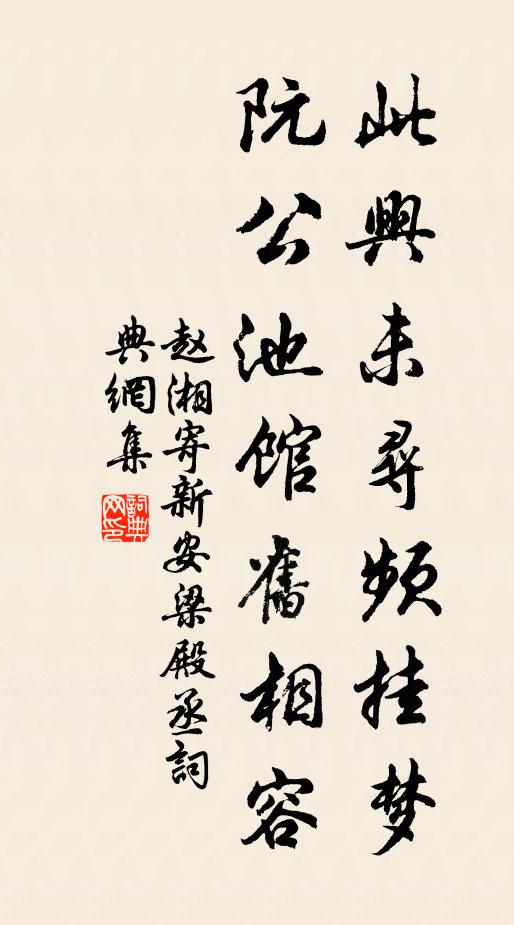 此興未尋頻挂梦
阮公池馆舊相容
赵湘寄新安梁殿丞詞
典網集
詞典网印